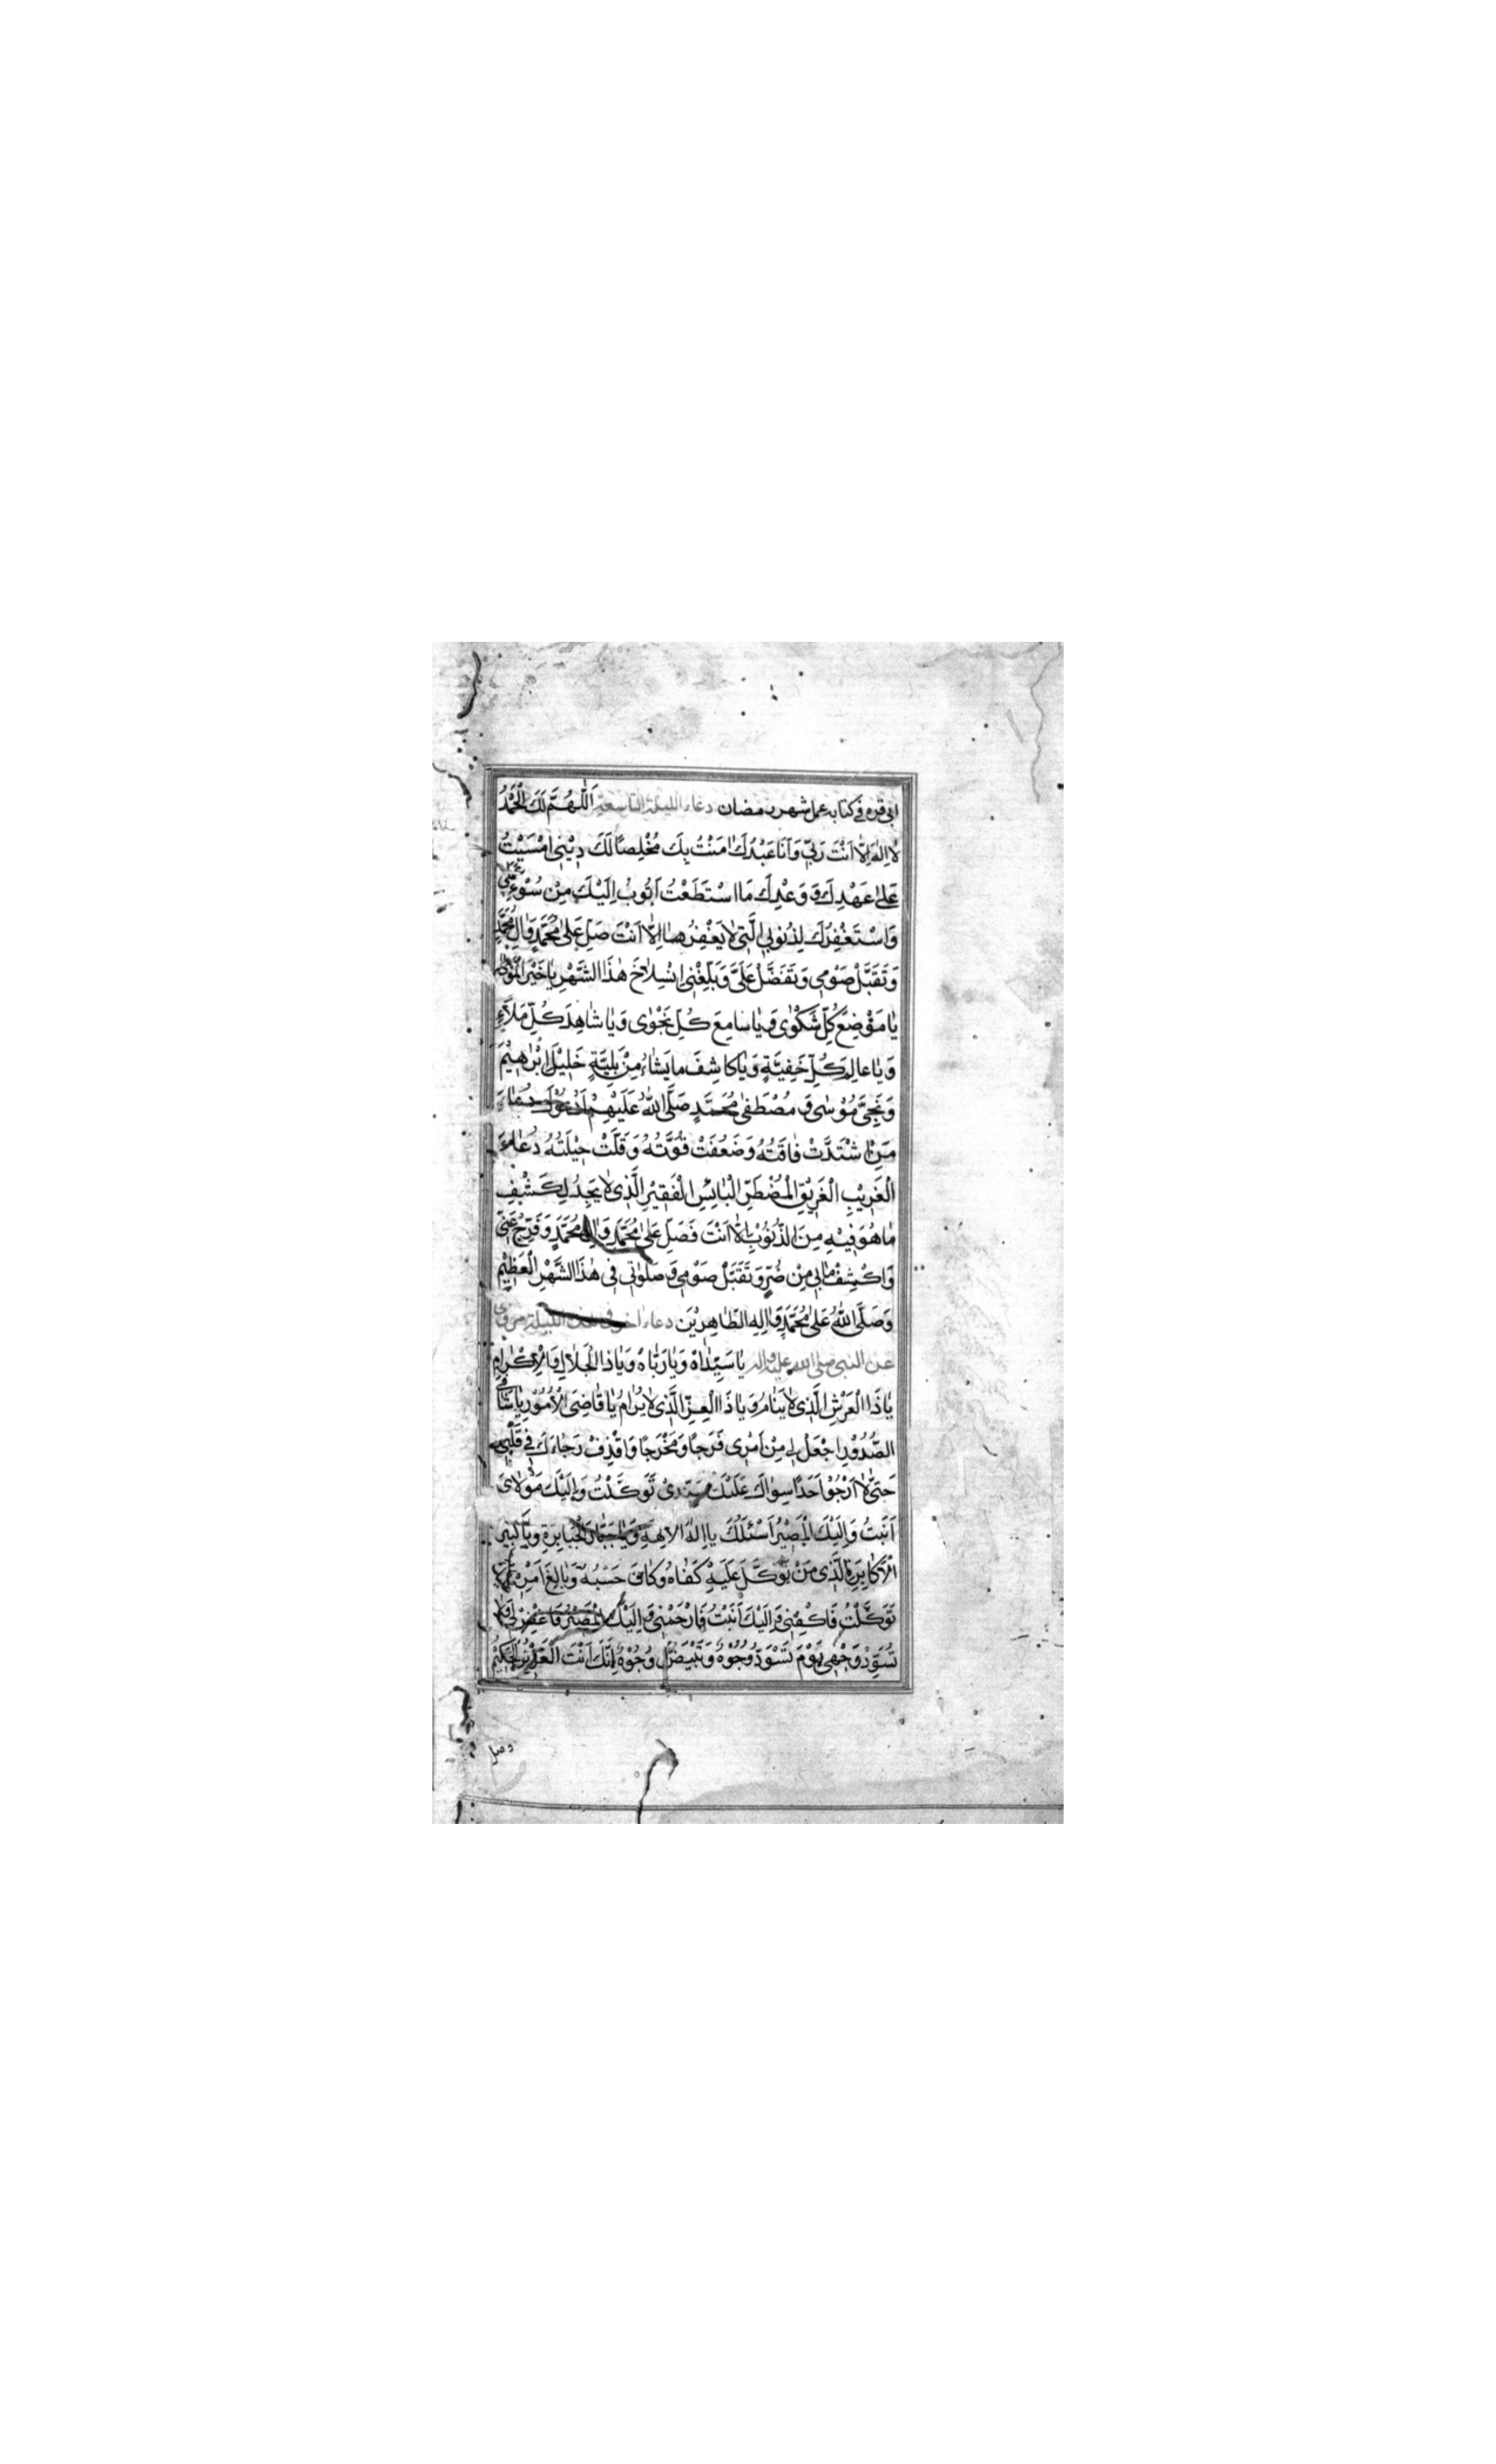 ابى قره فى كتابه عمل شهر رمضان دعاء الليلة التاسعة اَللّٰهُمَّ لَكَ الْحَمْدُ
لٰا اِلٰهَ اِلّٰا اَنْتَ رَبّى وَاَنَا عَبْدُكَ اٰمَنْتُ بِكَ مُخْلِصًا لَكَ دِيْنِى اَمْسَيْتُ
عَلٰى عَهْدِكَ وَ وَعْدِكَ مَا اسْتَطَعْتُ اَتُوبُ اِلَيْكَ مِنْ سُوْءِ عملى
وَاَسْتَغْفِرُكَ لِذُنُوبِى الَّتِى لٰا يَغْفِرُهٰا اِلّٰا اَنْتَ صَلِّ عَلٰى مُحَمَّدٍ وَاٰلِ مُحَمَّدٍ
وَتَقَبَّلْ صَوْمِى وَتَفَضَّلْ عَلَىَّ وَبَلِّغْنِى انْسِلٰاخَ هٰذَا الشَّهْرِ يٰا خَيْرَ الْمَوْلٰى
يٰا مَوْضِعَ كُلِّ شَكْوٰى وَ يٰا سٰامِعَ كُلِّ نَجْوٰى وَيٰا شٰاهِدَ كُلِّ مَلَاءٍ
وَيٰا عالِمَ كُلِّ خَفِيَّةٍ وَيٰا كٰاشِفَ مٰا يَشٰاءُ مِنْ بَلِيَّةٍ خَلِيْلَ اِبْرٰاهِيْمَ
وَنَجِىَّ مُوْسٰى وَ مُصْطَفٰى مُحَمَّدٍ صَلَّى اللّٰهُ عَلَيْهِمْ اَدْعُوْكَ دُعٰاءَ
مَنِ اشْتَدَّتْ فٰاقَتُهُ وَضَعُفَتْ قُوَّتُهُ وَقَلَّتْ حِيْلَتُهُ دُعٰاءَ
الْغَرِيْبِ الْغَرِيْقِ الْمُضْطَرِّ الْبٰائِسِ الْفَقِيْرِ الَّذِى لٰا يَجِدُ لِكَشْفِ
مٰا هُوَ فِيْهِ مِنَ الذُّنُوْبِ اِلّٰا اَنْتَ فَصَلِّ عَلٰى مُحَمَّدٍ وَاٰلِ مُحَمَّدٍ وَفَرِّجْ عَنِّى
وَاكْشِفْ مٰا بِى مِنْ ضُرٍّ وَتَقَبَّلْ صَوْمِى وَ صَلٰوتِى فِى هٰذَا الشَّهْرِ الْعَظِيْمِ
وَصَلَّى اللّٰهُ عَلٰى مُحَمَّدٍ وَاٰلِهِ الطّٰاهِرِيْنَ دعاء اخر فى هذه الليلة مروى
عن النبى صلى الله عليه واله يٰا سَيِّدٰاهُ وَيٰا رَبّٰاهُ وَيٰا ذَا الْجَلٰالِ وَالْاِكْرٰامِ
يٰا ذَا الْعَرْشِ الَّذِى لٰا يَنٰامُ وَيٰا ذَا الْعِزِّ الَّذِى لٰا يُرٰامُ يٰا قٰاضِىَ الْاُمُوْرِ يٰا شٰافِىَ
الصُّدُوْرِ اجْعَلْ لِى مِنْ اَمْرِى فَرَجًا وَمَخْرَجًا وَاقْذِفْ رَجٰاءَكَ فِى قَلْبِى
حَتّٰى لٰا اَرْجُوْ اَحَدًا سِوٰاكَ عَلَيْكَ سَيِّدِى تَوَكَّلْتُ وَاِلَيْكَ مَوْلٰاىَ
اَنَبْتُ وَاِلَيْكَ الْمَصِيْرُ اَسْئَلُكَ يٰا اِلٰهَ الْاٰلِهَةِ وَيٰا جَبّٰارَ الْجَبٰابِرَةِ وَيٰا كَبِيْرَ
الْاَكٰابِرِ الَّذِى مَنْ تَوَكَّلَ عَلَيْهِ كَفٰاهُ وَكٰانَ حَسْبُهُ وَبٰالِغَ اَمْرِهِ عَلَيْكَ
تَوَكَّلْتُ فَاكْفِنِى وَاِلَيْكَ اَنَبْتُ فَارْحَمْنِى وَاِلَيْكَ الْمَصِيْرُ فَاغْفِرْ لِى وَلٰا
تُسَوِّدْ وَجْهِى يَوْمَ تَسْوَدُّ وُجُوْهٌ وَتَبْيَضُّ وُجُوْهٌ اِنَّكَ اَنْتَ الْعَزِيْزُ الْحَكِيْمُ
وصل